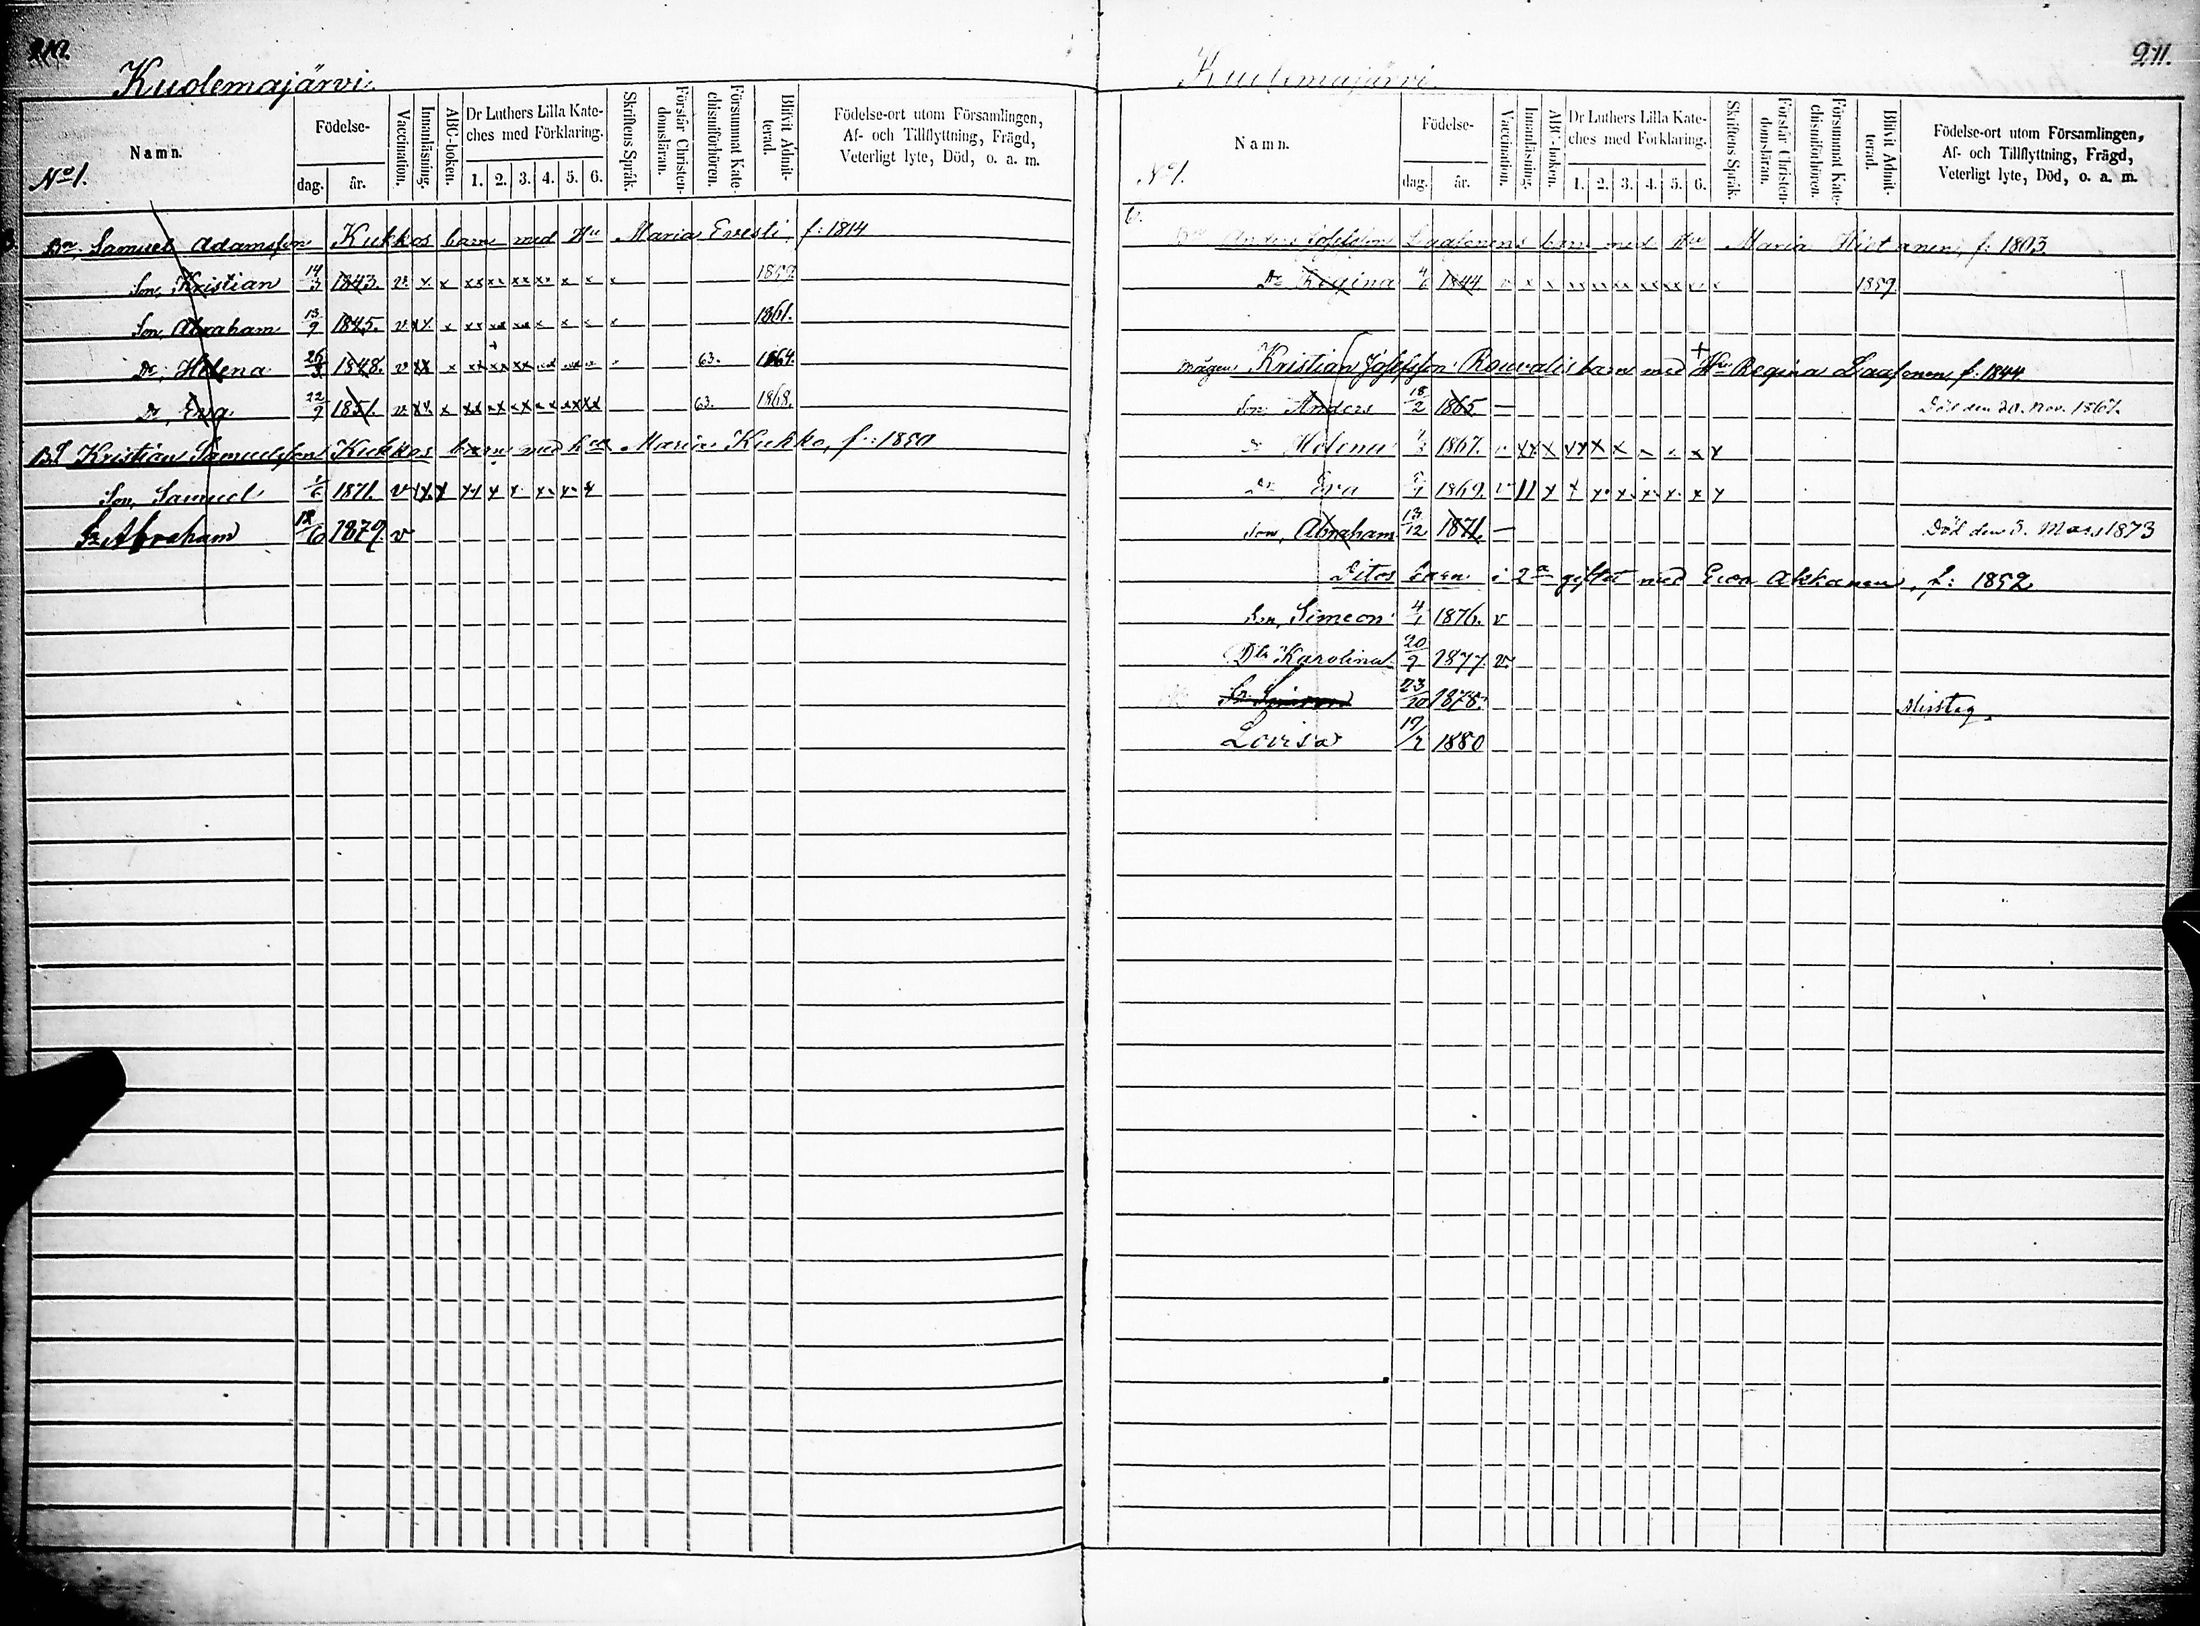 210.
Kuolemajärvi.
No 1.
Namn.
Födelse-
dag. år.
Vaccination.
Innanläsning.
ABC-boken.
Dr Luthers Lilla Kate-
ches med Förklaring.
1. 2. 3. 4. 5. 6.
Skriftens Språk.
Förstår Christen-
domsläran.
Försummat Kate-
chismiförhören.
Blifvit Admit-
terad.
Födelse-ort utom Församlingen,
Af- och Tillflyttning, Frägd,
Veterligt lyte, Död, o. a. m.
Bn. Samuel Adamsson Kukkos barn med Hu Maria Evesti f: 1814
Son, Kristian 14/3 1843. v x x xx xx xx xx x x x 1859.
Son, Abraham 13/9 1845. v xx x xx xx xx x x x x 1861.
Dr, Helena 26/3 1848. v xx x xx xx xx xx xx x 63. 1864.
Dr, Eva 22/9 1851. v xx x xx xx xx xx xx xx 63. 1868.
Kristian Samuelsson Kukkos barn med hu Maria Kukko, f: 1850
Son, Samuel 1/6 1871. v xx x xx x x x x x
Sr Abraham 18/6 1879. v
211.
Kuolemajärvi.
No 1.
Namn.
Födelse-
dag. år.
Vaccination.
Innanläsning.
ABC-boken.
Dr Luthers Lilla Kate-
ches med Förklaring.
1. 2. 3. 4. 5. 6.
Skriftens Språk.
Förstår Christen-
domsläran.
Försummat Kate-
chismiförhören.
Blifvit Admit-
terad.
Födelse-ort utom Församlingen,
Af- och Tillflyttning, Frägd,
Veterligt lyte, Död, o. a. m.
6.
Anders Josefsson Laasonens barn med Hu Maria Hietanen, f: 1803
Dr Regina 4/6 1844 v x x xx xx xx xx xx x x 1859.
mågen Kristian Josefsson Rouvalis barn med Hu Regina Laasonen f: 1844.
Son Anders 18/2 1865. — Död den 20. Nov. 1867.
Dr Helena 1867. v xx x xx x x x x x x
Dr Eva 1869. v 11 x x x x x x x x
Son, Abraham 13/12 1871. — Död den 3. Mars 1873
Ditos barn i 2a giftet med Eva Akkanen, f: 1852
Son, Simeon 4/1 1876. v
Dtr Karolina 20/9 1877. v
23/10 1878. Misstag.
Lovisa 19/2 1880